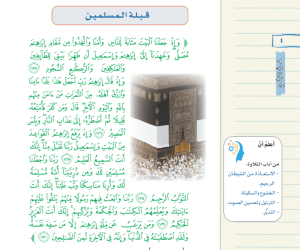 قبلة المسلمين
﴿ وَإِذْ جَعَلْنَا ٱلْبَيْتَ مَثَابَةً لِّلنَّاسِ وَأَمْنًا وَٱتَّخِذُوا۟ مِن مَّقَامِ إِبْرَٰهِـۧمَ
مُصَلًّى وَعَهِدْنَآ إِلَىٰٓ إِبْرَٰهِـۧمَ وَإِسْمَٰعِيلَ أَن طَهِّرَا بَيْتِىَ لِلطَّآئِفِينَ
وَٱلْعَٰكِفِينَ وَٱلرُّكَّعِ ٱلسُّجُودِ
وَإِذْ قَالَ إِبْرَٰهِـۧمُ رَبِّ ٱجْعَلْ هَٰذَا بَلَدًا ءَامِنًا
وَٱرْزُقْ أَهْلَهُۥ مِنَ ٱلثَّمَرَٰتِ مَنْ ءَامَنَ مِنْهُم
بِٱللَّهِ وَٱلْيَوْمِ ٱلْـَٔاخِرِ قَالَ وَمَن كَفَرَ فَأُمَتِّعُهُۥ
قَلِيلًا ثُمَّ أَضْطَرُّهُۥٓ إِلَىٰ عَذَابِ ٱلنَّارِ وَبِئْسَ
ٱلْمَصِيرُ وَإِذْ يَرْفَعُ إِبْرَٰهِـۧمُ ٱلْقَوَاعِدَ
مِنَ ٱلْبَيْتِ وَإِسْمَٰعِيلُ رَبَّنَا تَقَبَّلْ مِنَّآ إِنَّكَ
أَنتَ ٱلسَّمِيعُ ٱلْعَلِيمُ رَبَّنَا وَٱجْعَلْنَا
مُسْلِمَيْنِ لَكَ وَمِن ذُرِّيَّتِنَآ أُمَّةً مُّسْلِمَةً
لَّكَ وَأَرِنَا مَنَاسِكَنَا وَتُبْ عَلَيْنَآ إِنَّكَ أَنتَ
ٱلتَّوَّابُ ٱلرَّحِيمُ رَبَّنَا وَٱبْعَثْ فِيهِمْ رَسُولًا مِّنْهُمْ يَتْلُوا۟ عَلَيْهِمْ
ءَايَٰتِكَ وَيُعَلِّمُهُمُ ٱلْكِتَٰبَ وَٱلْحِكْمَةَ وَيُزَكِّيهِمْ إِنَّكَ أَنتَ ٱلْعَزِيزُ
ٱلْحَكِيمُ وَمَن يَرْغَبُ عَن مِّلَّةِ إِبْرَٰهِـۧمَ إِلَّا مَن سَفِهَ نَفْسَهُۥ
وَلَقَدِ ٱصْطَفَيْنَٰهُ فِى ٱلدُّنْيَا وَإِنَّهُۥ فِى ٱلْـَٔاخِرَةِ لَمِنَ ٱلصَّٰلِحِينَ
٤
أتعلم أن
من آداب التلاوة:
- الاستعاذة من الشيطان
الرجيم.
- الخشوع والسكينة.
- الترتيل وتحسين الصوت.
- التدبُّر.